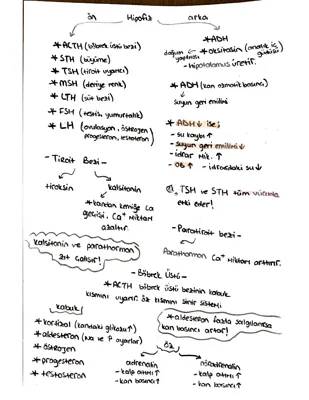 ön Hipofiz arka
* ACTH (böbrek üstü bezi)
* STH (büyüme)
* TSH (tiroit uyarıcı)
* MSH (deriye renk)
* LTH (süt bezi)
* FSH (testis, yumurtalık)
* LH (ovulasyon, östrojen
progesteron, testosteron)
* ADH
* oksitosin
doğum yapması
- hipotalamus üretir.
* ADH (kan ozmotik basıncı)
suyun geri emilimi
* ADH ↓ ise;
- su kaybı ↑
- suyun geri emilimi ↓
- idrar mik. ↑
- OB ↑ - idrardaki su ↓
- Tiroit Bezi -
tiroksin kalsitonin
* kandan kemiğe Ca
geçişi, Ca⁺ miktarı
azaltır.
TSH ve STH tüm vücuda
etki eder!
kalsitonin ve parathormon
zıt çalışır!
- Paratiroit bezi -
Parathormon Ca⁺ miktarı arttırır.
- Böbrek Üstü -
* ACTH böbrek üstü bezinin kabuk
kısmını uyarır. öz kısmını sinir sistemi
kabuk
* kortizol (kandaki glikozu ↑)
* aldosteron (Na ve P ayarlar)
* östrojen
* progesteron
* testosteron
* aldosteron fazla salgılanırsa
kan basıncı artar!
öz
adrenalin
- kalp atımı ↑
- kan basıncı ↑
nöradrenalin
- kalp atımı ↑
- kan basıncı ↑